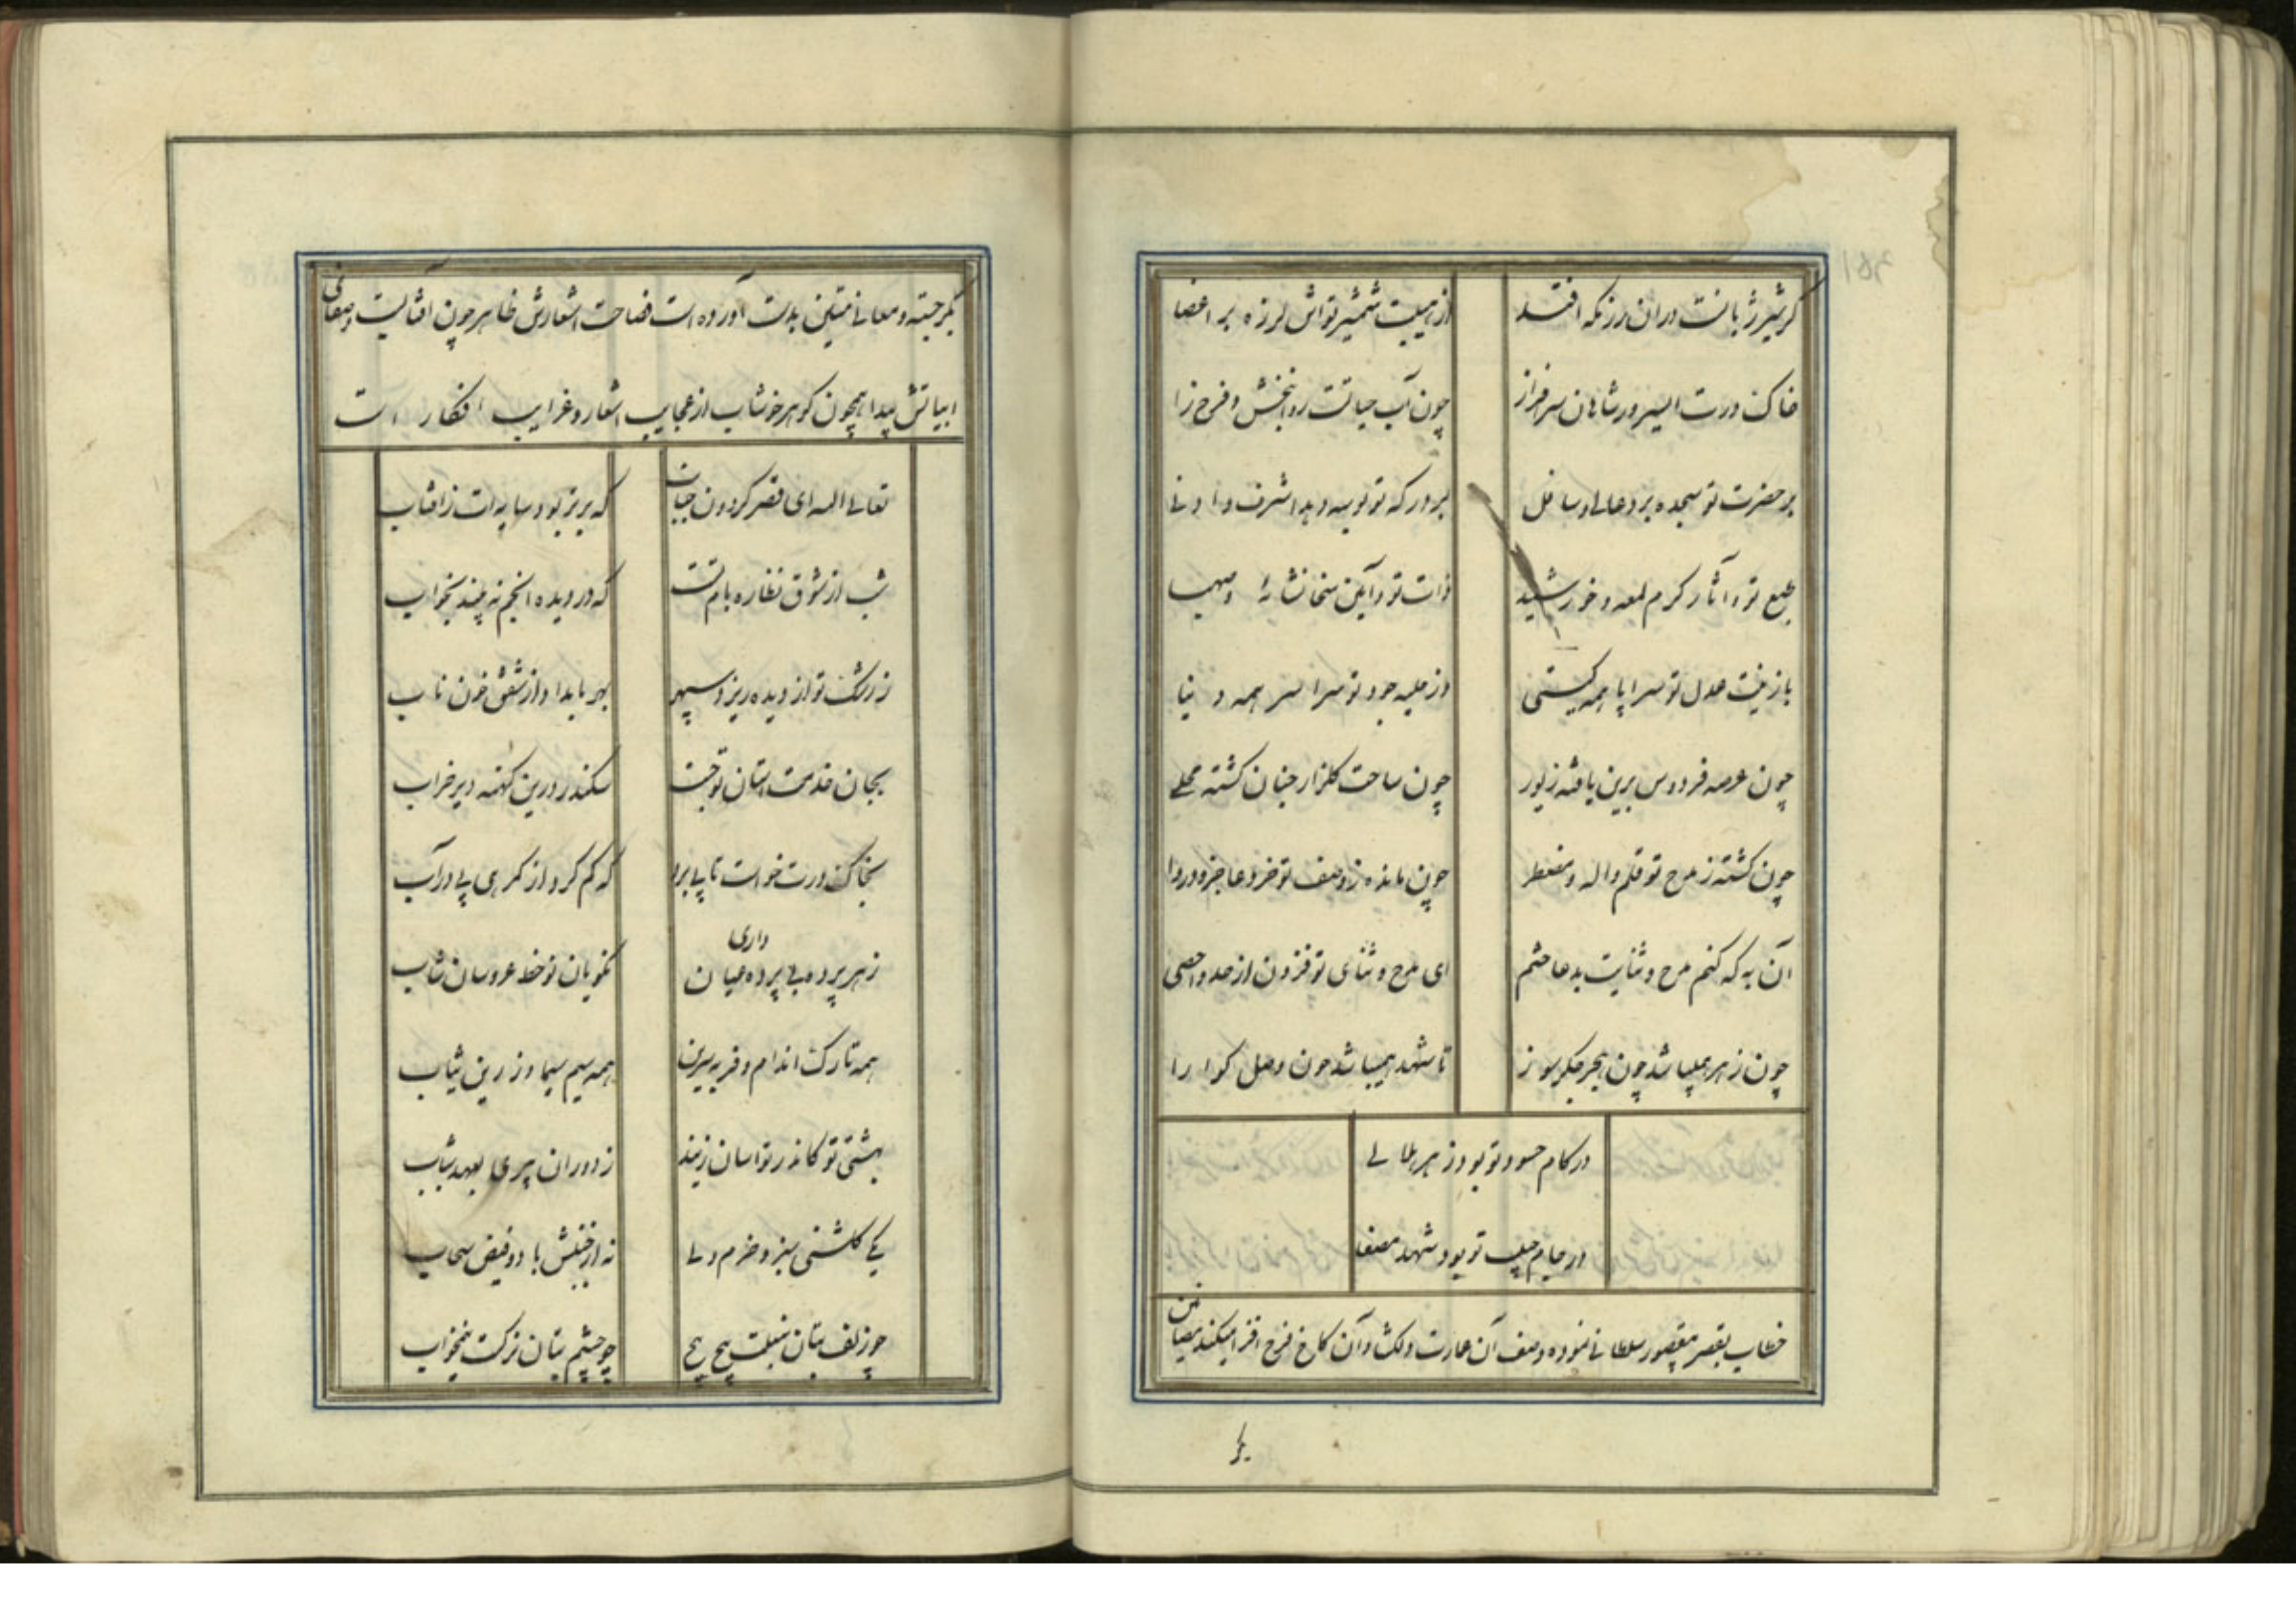 گر شیر ژیانست در ان رزمگه افتد
از هیبت شمشیر تواش لرزه بر اعضا
خاک درت ای سرور شاهان سرافراز
چون آب حیاتست روانبخش و فرح زا
بر حضرت تو سجده برد عالی و سافل
بر درگه تو بوسه دهد اشرف و ادنی
طبع تو و آثار کرم لمعه و خورشید
ذات تو و آیین سخا نشائه و صهبا
با زینت عدل تو سراپا همه گیتی
وز حلیه جود تو سراسر همه دنیا
چون عرصه فردوس برین یافته زیور
چون ساحت گلزار جنان گشته محلی
چون گشته ز مدح تو قلم واله و مضطر
چون مانده ز وصف تو خرد عاجز و دروا
آن به که کنم مدح و ثنایت بدعا ختم
ای مدح و ثنای تو فزون از حد و احصی
چون زهر همیباشد چون هجر جگرسوز
تا شهد همیباشد چون وصل گوارا
در کام حسود تو بود زهر هلاهل
در جام حبیب تو بود شهد مصفا
خطاب بقصر مقصور سلطانی نموده وصف آن عمارت دلگشا و آن کاخ فرح افزا میکند مضامین
بکر
بکر جسته و معانی متین بدست آورده است فصاحت اشعارش ظاهر چون آفتابست و صفای
ابیاتش پیدا همچون گوهر خوشاب از عجایب اشعار و غرایب افکار است
تعالی اله ای قصر گردون جناب
که برتر بود سایه ات ز افتاب
شب از شوق نظاره بام تست
که در دیده انجم نه بیند بخواب
ز رشک تو از دیده ریزد سپهر
بهر بامداد از شفق خون ناب
بجان خدمت استان تو جست
سکندر درین کهنه دیر خراب
بخاک درت خواست تا پی برد
که گم کرد از گمرهی پی در آب
ز هر پرده بی پرده داری عیان
نکویان نوخط عروسان شاب
همه نازک اندام و فربه سرین
همه سیم سیما و زرین ثیاب
بهشتی تو کاندر تو اسان زیند
ز دوران پیری بعهد شباب
یکی گلشنی سبز و خرم ولی
نه از جنبش باد و فیض سحاب
چو زلف بتان سنبلت پیچ پیچ
چو چشم بتان نرگست نیمخواب